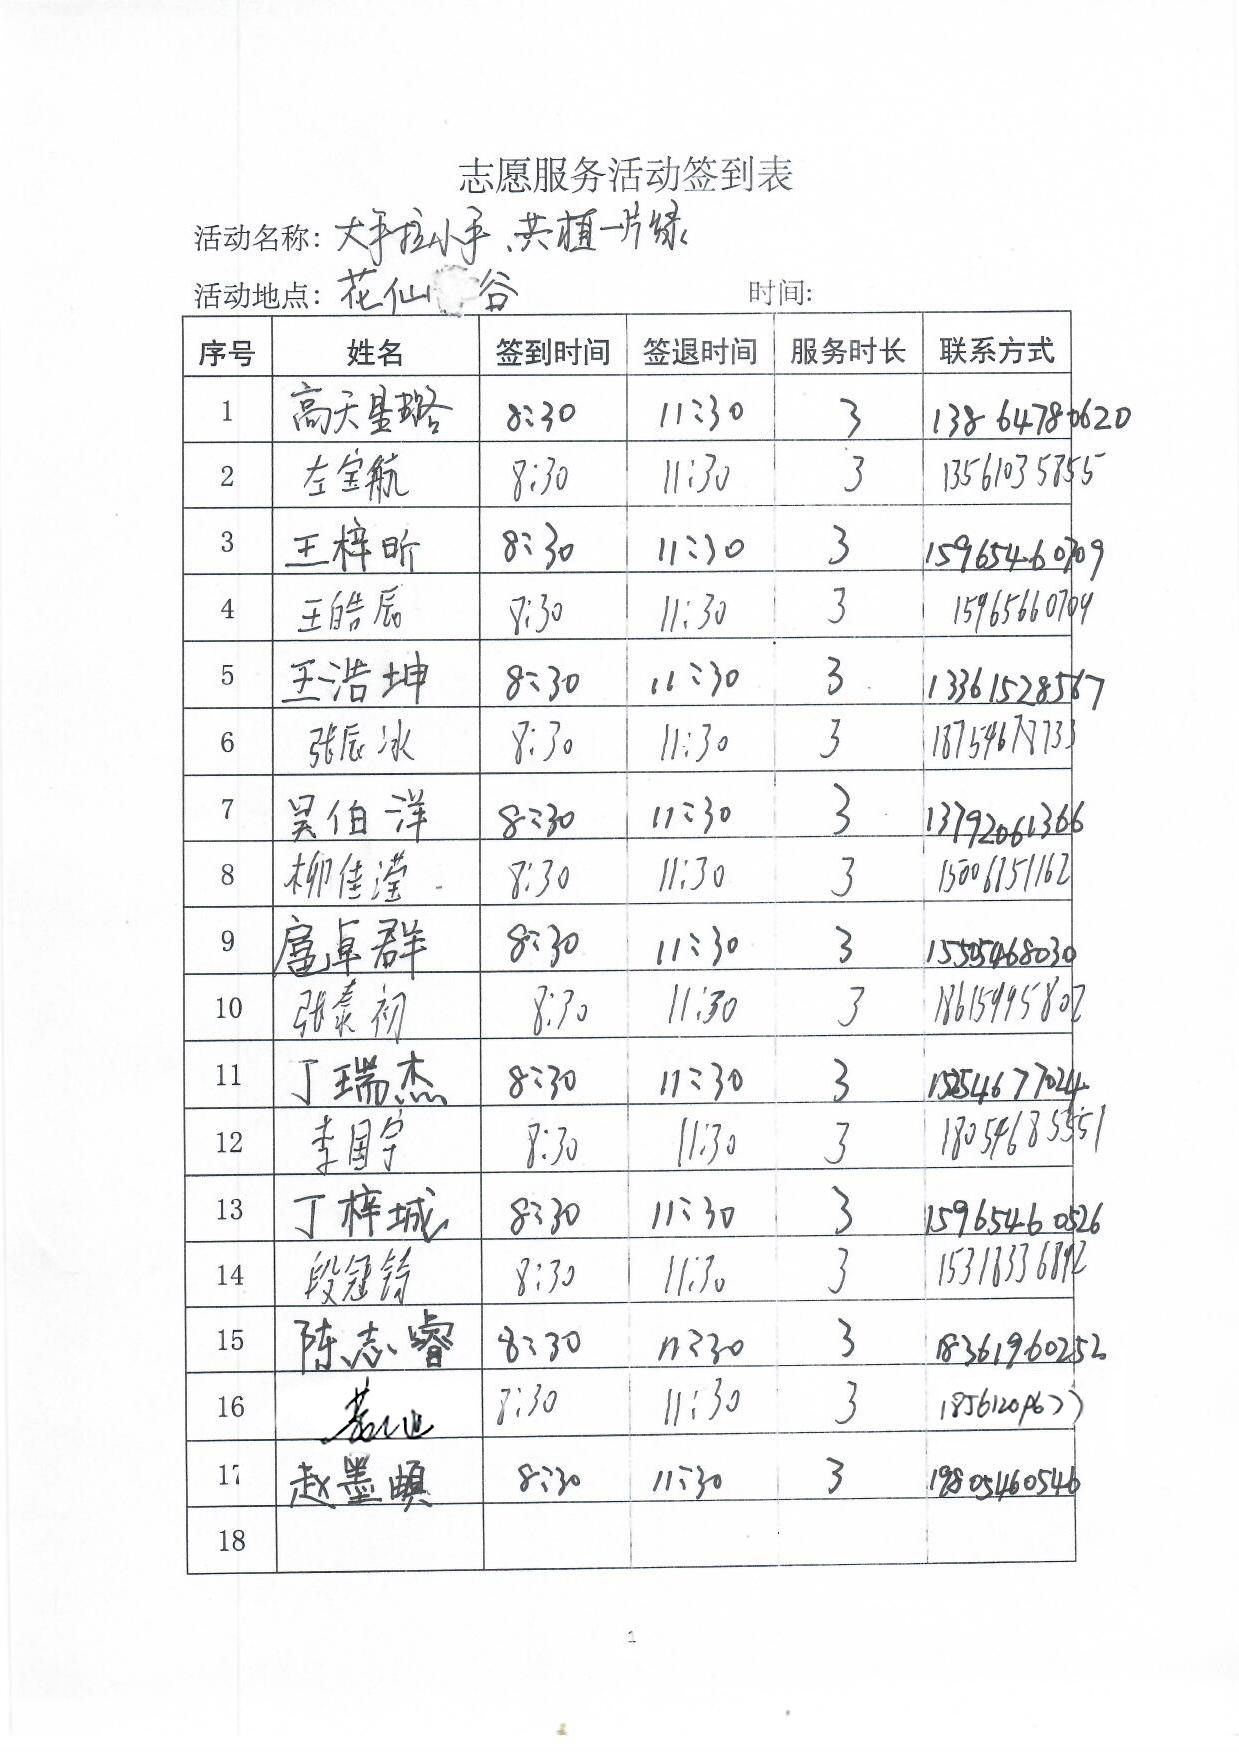 志愿服务活动签到表
活动名称: 大手拉小手、共植一片绿
活动地点: 花仙 谷 时间:
序号 姓名 签到时间 签退时间 服务时长 联系方式
1 高天星璐 8:30 11:30 3 13864780620
2 左宝航 8:30 11:30 3 13561035855
3 王梓昕 8:30 11:30 3 15965460709
4 王皓辰 8:30 11:30 3 15965660709
5 王浩坤 8:30 11:30 3 13361528567
6 张辰冰 8:30 11:30 3 18754678733
7 吴伯洋 8:30 11:30 3 13792061366
8 柳佳滢 8:30 11:30 3 15006151162
9 扈卓群 8:30 11:30 3 15505468030
10 张泰初 8:30 11:30 3 18615995802
11 丁瑞杰 8:30 11:30 3 15254677024
12 李国宇 8:30 11:30 3 18054685551
13 丁梓城 8:30 11:30 3 15965460526
14 段冠 8:30 11:30 3 15318336892
15 陈志睿 8:30 11:30 3 18361960252
16 8:30 11:30 3
17 赵墨 8:30 11:30 3 19805460546
18
1